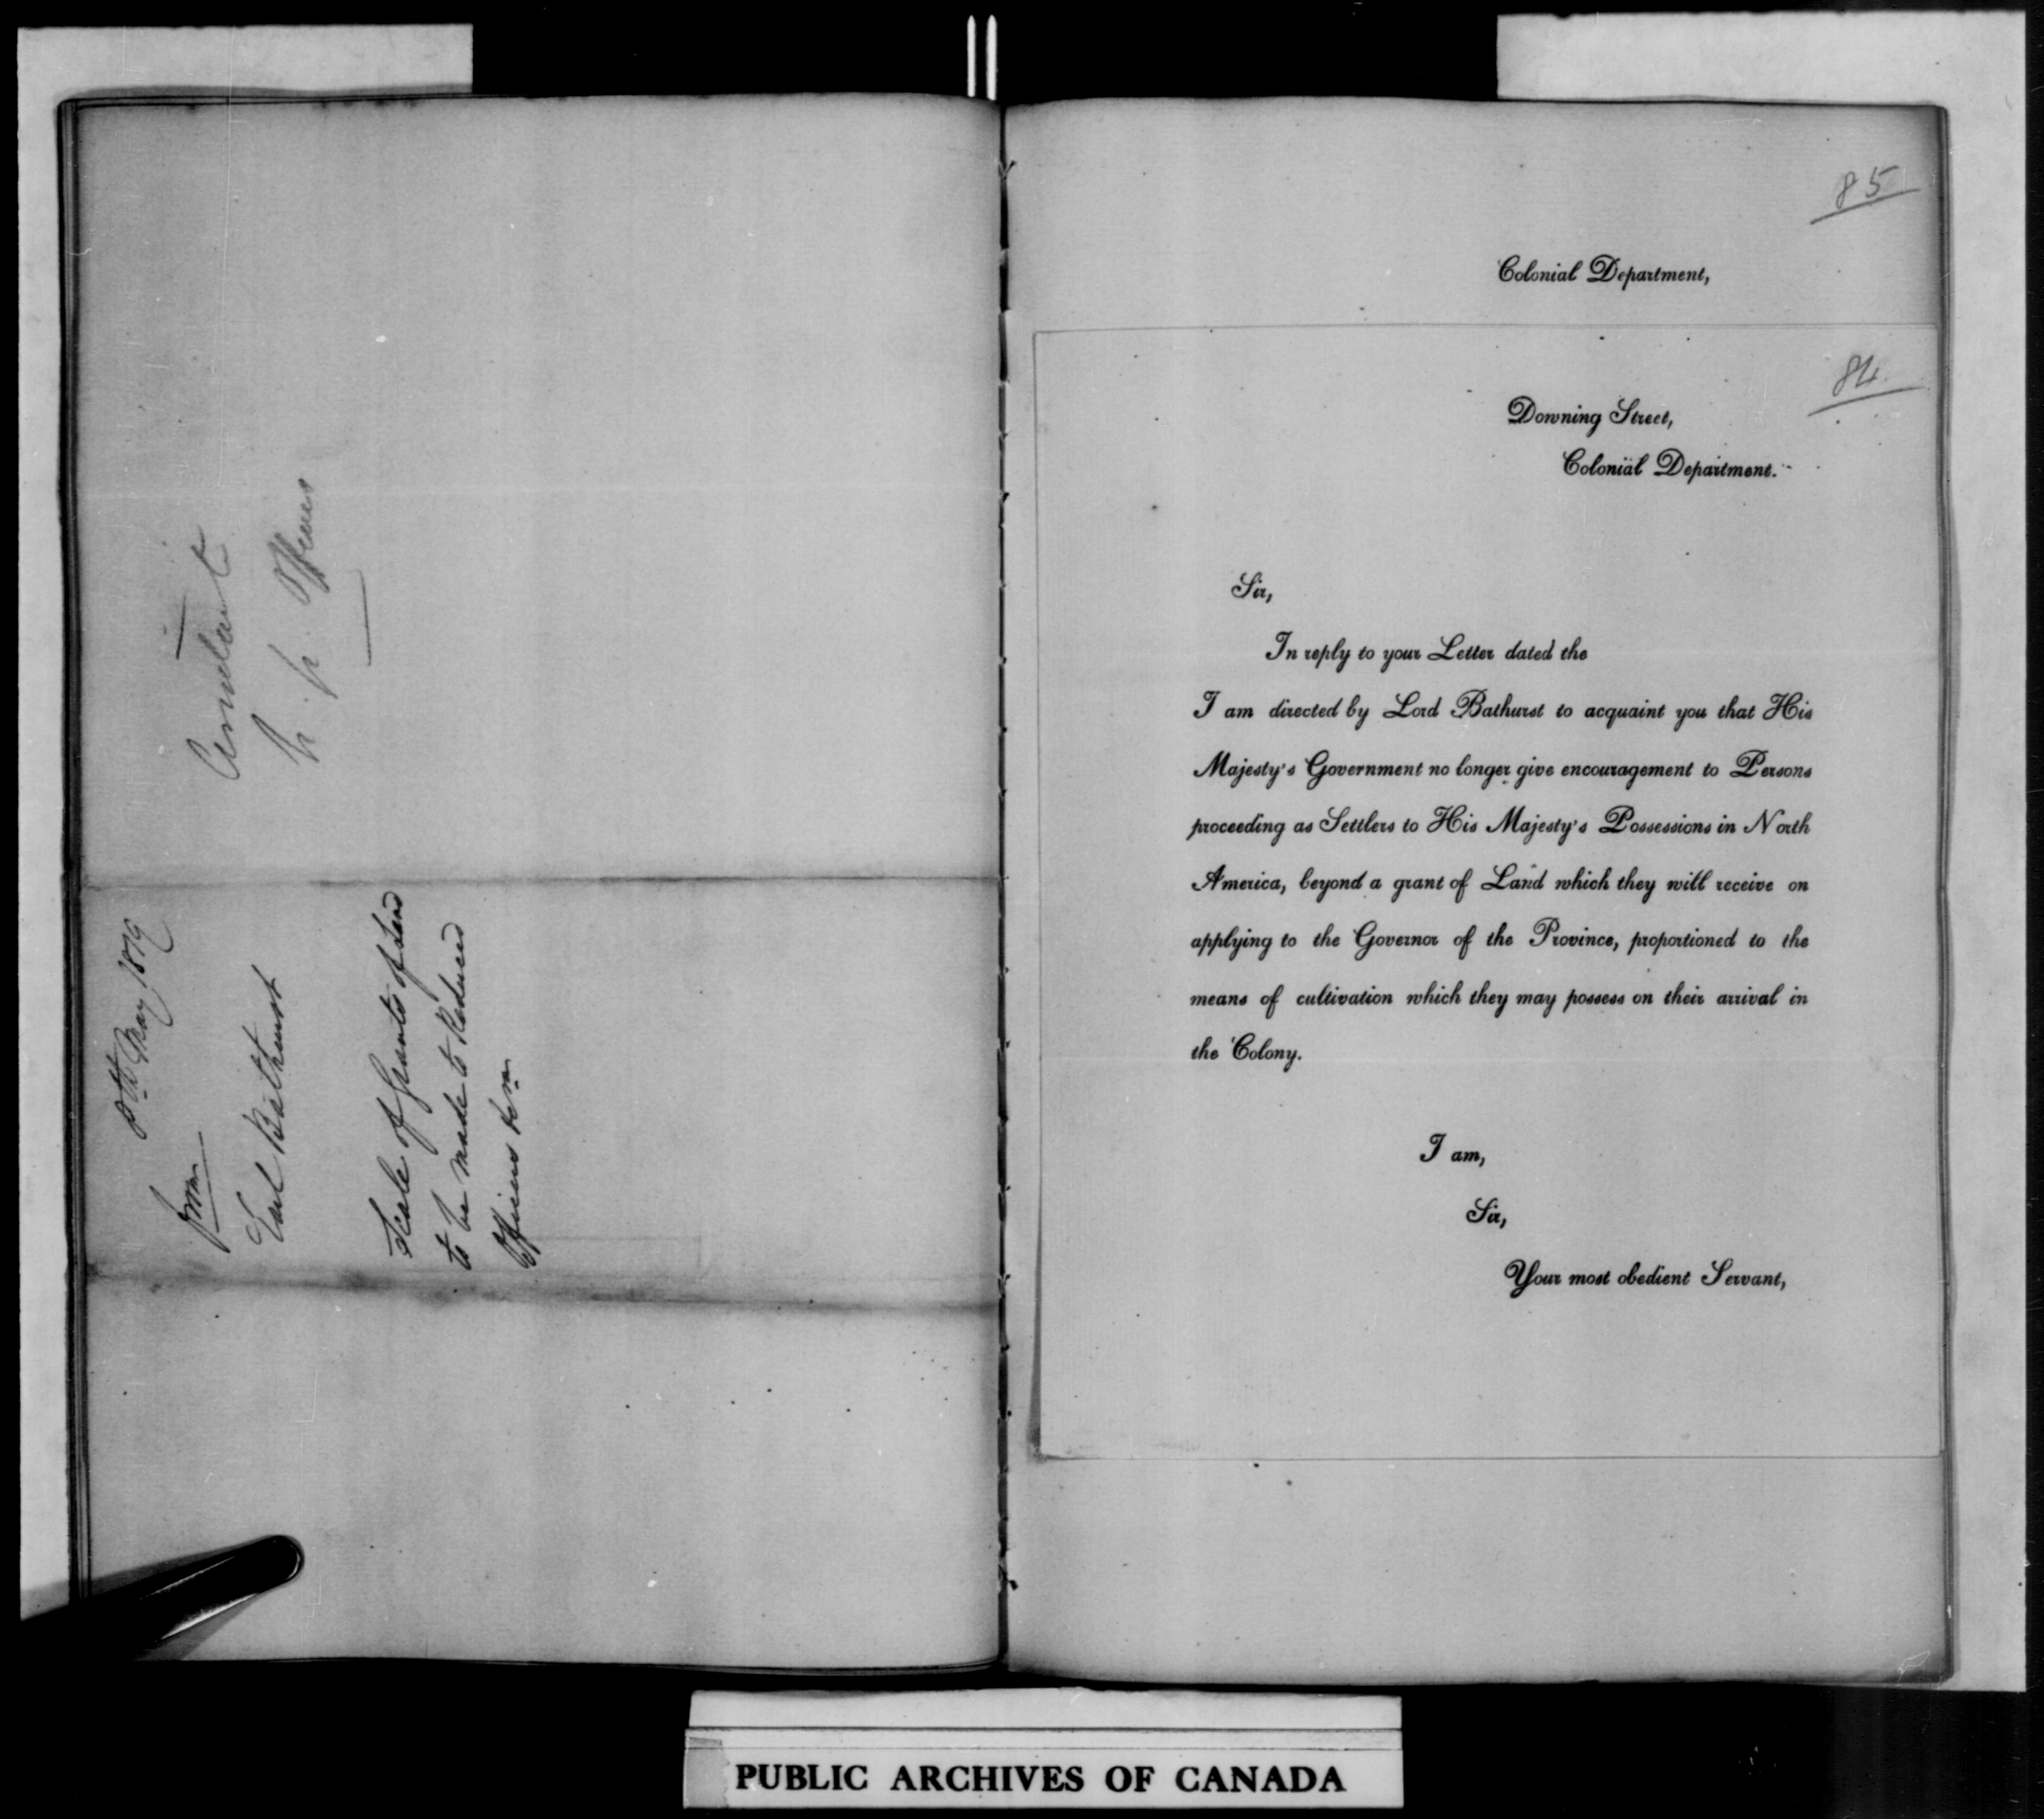 8th May 1819
from
Earl Bathurst
Scale of Grants of Land
to be made to Reduced
Officers &c
h. p. Officers
85
Colonial Department,
84
Downing Street,
Colonial Department.
Sir,
In reply to your Letter dated the
I am directed by Lord Bathurst to acquaint you that His
Majesty's Government no longer give encouragement to Persons
proceeding as Settlers to His Majesty's Possessions in North
America, beyond a grant of Land which they will receive on
applying to the Governor of the Province, proportioned to the
means of cultivation which they may possess on their arrival in
the Colony.
I am,
Sir,
Your most obedient Servant,
PUBLIC ARCHIVES OF CANADA